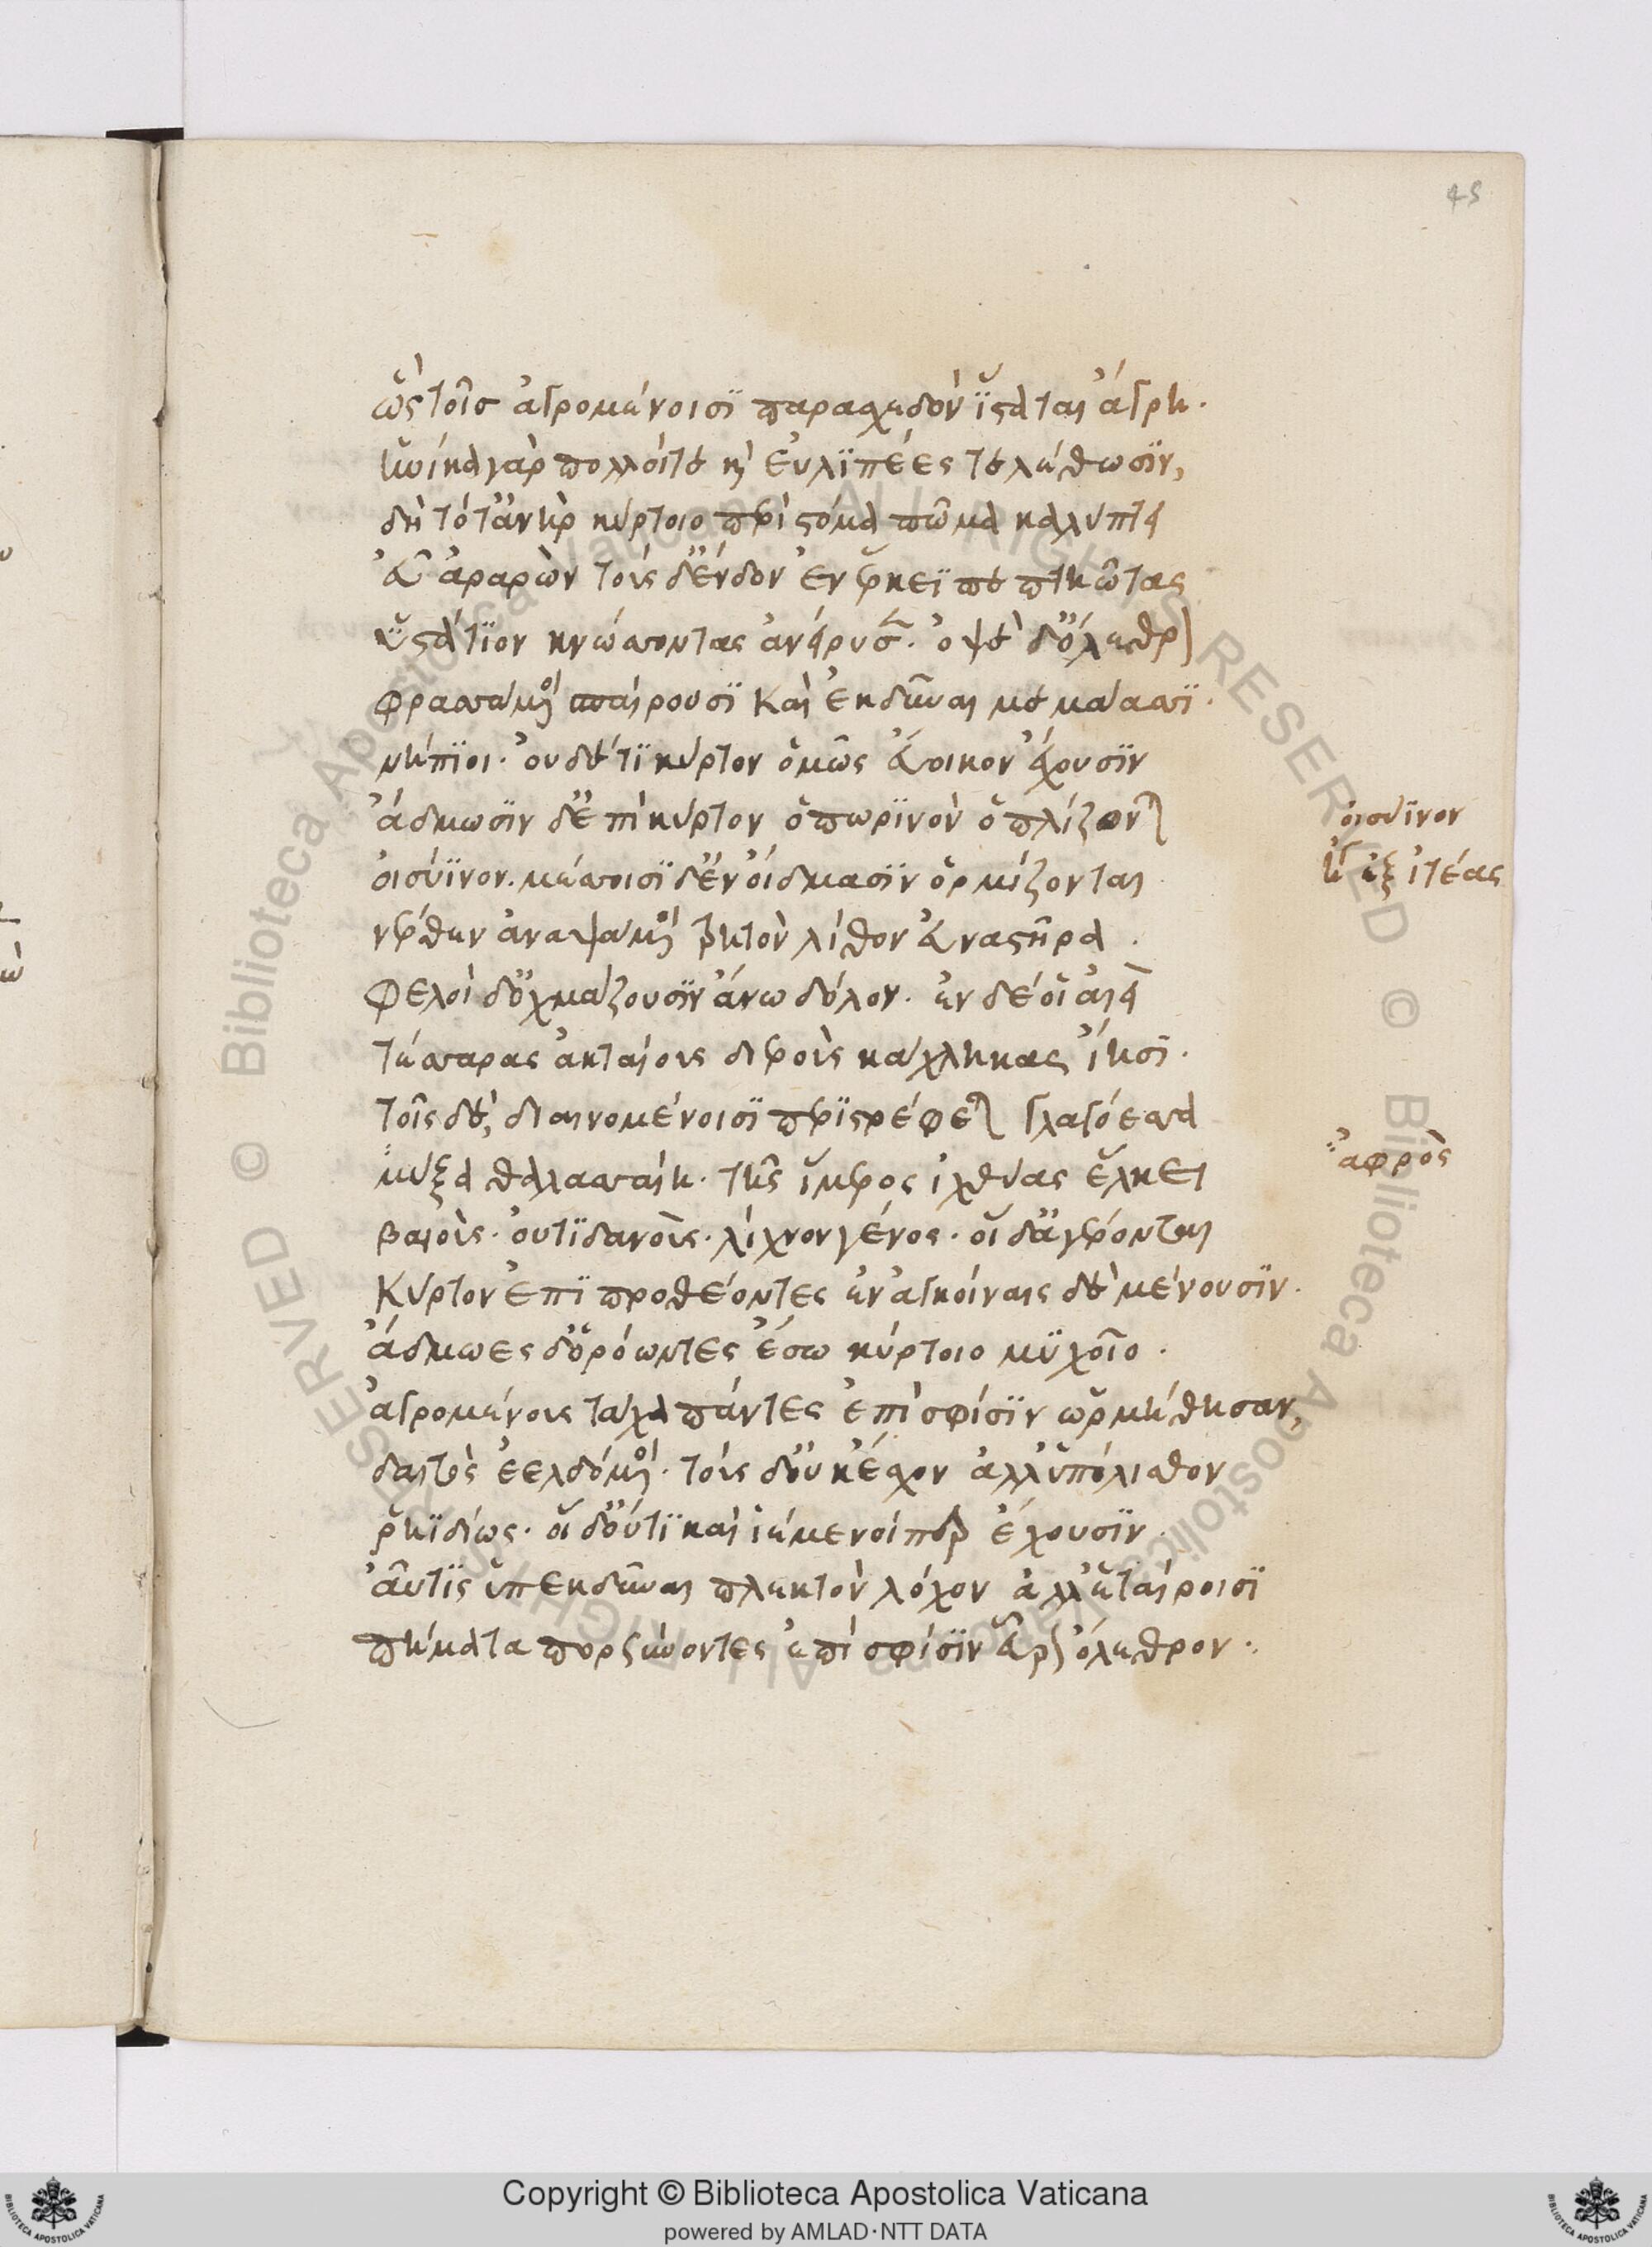 ὣς τοῖσ ἀγρομένοισϊ παρασχεδὸν ἵ̈σταται ἄγρη.
ἡνίκα γὰρ πολλοίτε κὴ εὐλϊπέες τελέθωσϊν,
δὴ τότἀνὴρ κύρτοιο περὶ στόμα πῶμα καλύπτει
εὖ ἀραρὼν τοὺς δἔνδον ἐν ἕρκεϊ πεπτηῶτας
ὑστάτϊον κνώσσοντας ἀνείρυσεν. ὀψὲ δὄλεθρον
φρασσάμενοι σπαίρουσϊ καὶ ἐκδῦναι μεμάασσϊ.
νήπϊοι. οὐδέτϊ κύρτον ὁμῶς εὔοικον ἔχουσϊν
ἄδμωσϊν δἐπὶ κύρτον ὀπωρϊνὸν ὁπλίζονται
οἰσύϊνον. μέσσοισϊ δἐν οἴδμασϊν ὁρμίζονται
νέρθεν ἀναψάμενοι τρητὸν λίθον εὐναστῆρα.
φελοὶ δὀχμάζουσϊν ἄνω δόλον. ἐν δέ οἱ αἰεὶ
τέσσαρας ἀκταίους διεροὺς κάχληκας ἵησϊ.
τοῖς δὲ, διαινομένοισϊ περϊστρέφεται γλαγόεσσα
μύξα θαλασσαίη. τῆς ἵμερος ἰχθύας ἕλκει
βαιοὺς. οὐτϊδανοὺς. λίχνον γένος. οἳ δἀγέρονται
κύρτον ἐπϊ προθέοντες ἐν ἀγκοίναις δὲ μένουσϊν.
ἄδμωες δὁρόωντες ἔσω κύρτοιο μϋχοῖο.
ἀγρομένους τάχα πάντες ἐπὶ σφίσϊν ὡρμήθησαν,
δαιτὸς ἐελδόμενοι. τοὺς δοὐκ ἔσχον ἀλλὑπόλισθον
ῥηϊδίως. οἳ δοὔτϊ καὶ ἱέμενοί περ ἔχουσϊν.
αὖτϊς ὑπεκδῦναι πλεκτὸν λόχον ἀλλἑταίροισϊ
πήματα πορσύνοντες ἐπὶ σφίσϊν εὗρον ὄλεθρον.
οἰσύϊνον
ἢ ἐξ ἰτέας
ἀφρὸς
45
Copyright © Biblioteca Apostolica Vaticana
powered by AMLAD·NTT DATA